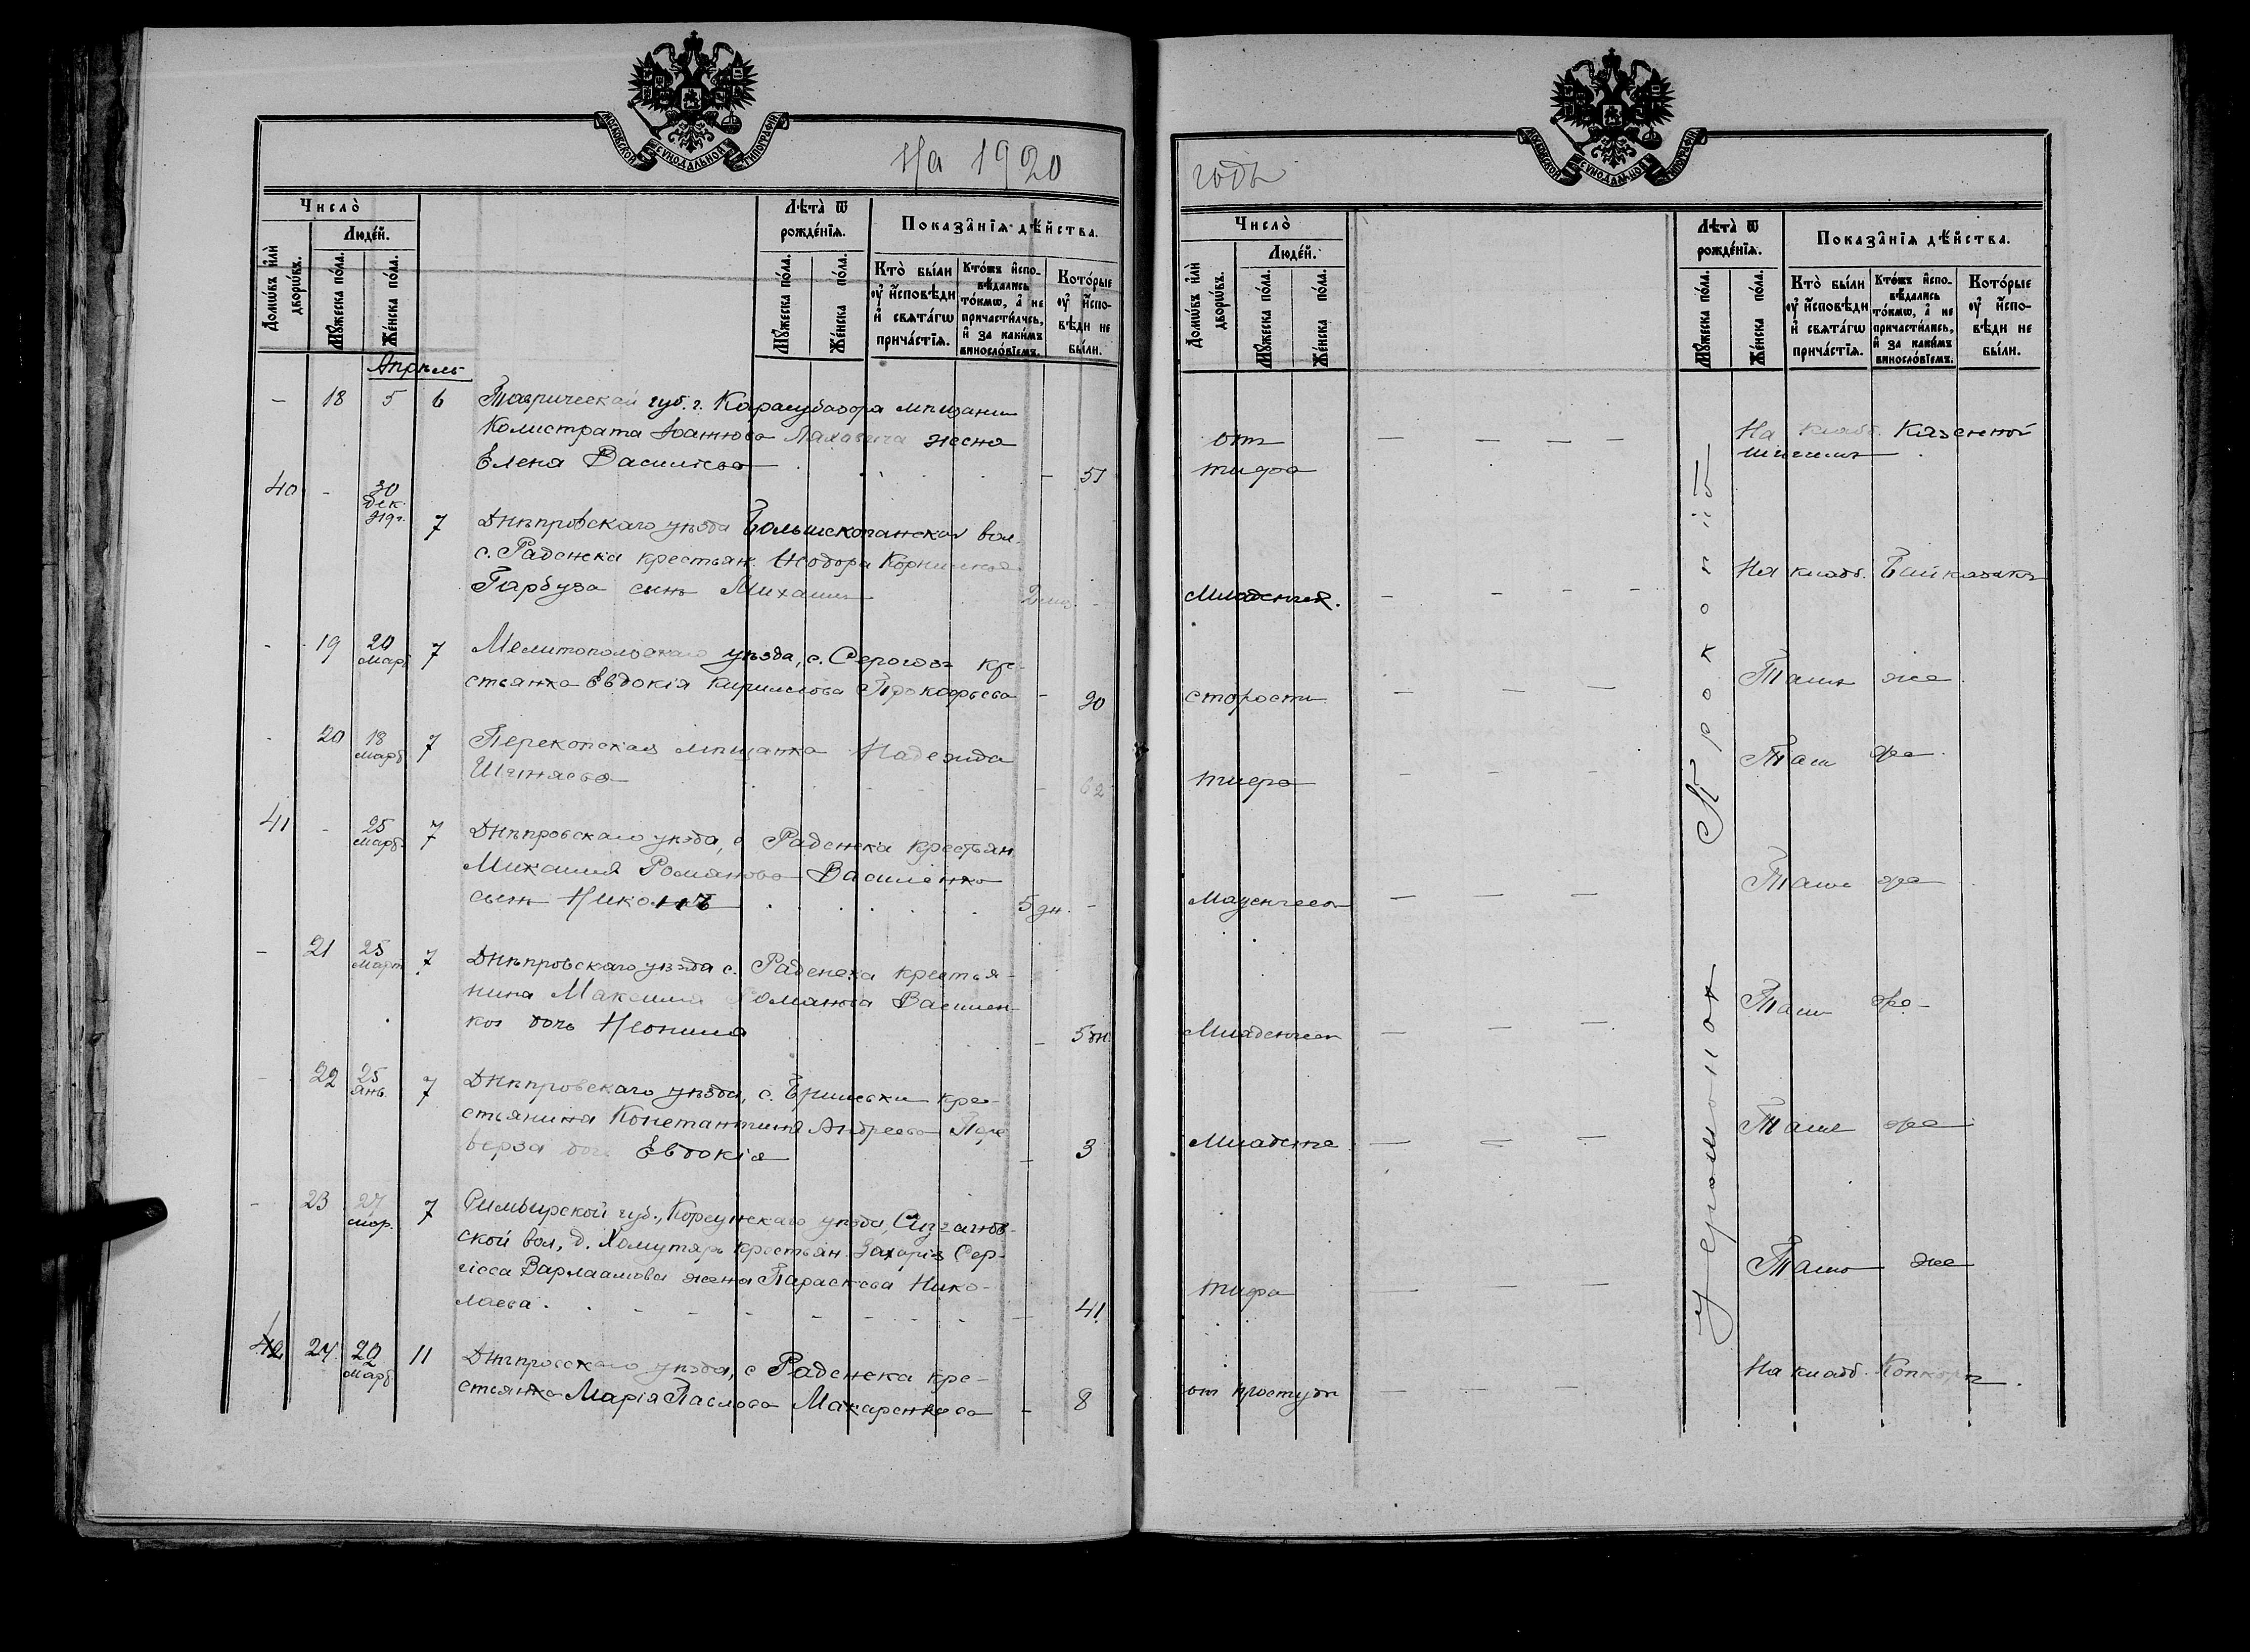 МОСКОВСКОЙ СѴНОДАЛЬНОЙ ТИПОГРАФІИ
На 1920
Число̀
Домѡ́въ и҆лѝ дворѡ́въ.
Люде́й.
Мꙋ́жеска по́ла.
Же́нска по́ла.
Лѣ́та ѿ рожде́нїѧ.
Мꙋ́жеска по́ла.
Же́нска по́ла.
Показа̂нїѧ дѣ́йства.
Кто̀ бы́ли ᲂу҆ и҆́сповѣди и҆ свѧта́гѡ прича́стїѧ.
Кто́жъ и҆сповѣ́дались то́кмѡ, а҆ не причасти́лись, и҆ за каки́мъ винослѡ́вїемъ.
Кото́рые ᲂу҆ и҆́сповѣди не бы́ли.
Апрѣль
- 18 5 6 Таврической губ. г. Карасубазара мѣщанин
Калистрата Іоаннова жена
Елена Васильева - 51
40 - 30 Дек. 919 г. 7 Днѣпровскаго уѣзда Больѣкопанской вол.
с. Раденска крестьян. Ѳеодора Корнилія
Гарбуза сынъ Михаилъ -
- 19 20 Март 7 Мелитопольскаго уѣзда, с. Серогозъ кре-
стьянка Евдокія Кириллова Прокофьева - 90
- 20 18 Март 7 Перекопская мѣщанка Надежда
- 62
41 - 25 Март 7 Днѣпровскаго уѣзда, с Раденска крестьян
Михаила Романова Василенко
сынъ 5 дн. -
- 21 25 Март 7 Днѣпровскаго уѣзда с. Раденска крестья-
нина Максима Романова Василен-
ко дочь Неонила - 5 дн.
- 22 25 Янв. 7 Днѣпровскаго уѣзда, с. кре-
стьянина Константина Андреева Пере
верза дочь Евдокія - 3
- 23 27 мар. 7 Симбирской губ., Корсунскаго уѣзда,
ской вол., д. Хомутярь крестьян. Захарія Сер-
гіева Варлаамова жена Параскева Нико-
лаева - 41
42 24 20 Март 11 Днѣпровскаго уѣзда, с Раденска кре-
стьянка Марія Павлова Макаренкова - 8
МОСКОВСКОЙ СѴНОДАЛЬНОЙ ТИПОГРАФІИ
годъ
Число̀
Домѡ́въ и҆лѝ дворѡ́въ.
Люде́й.
Мꙋ́жеска по́ла.
Же́нска по́ла.
Лѣ́та ѿ рожде́нїѧ.
Мꙋ́жеска по́ла.
Же́нска по́ла.
Показа̂нїѧ дѣ́йства.
Кто̀ бы́ли ᲂу҆ и҆́сповѣди и҆ свѧта́гѡ прича́стїѧ.
Кто́жъ и҆сповѣ́дались то́кмѡ, а҆ не причасти́лись, и҆ за каки́мъ винослѡ́вїемъ.
Кото́рые ᲂу҆ и҆́сповѣди не бы́ли.
отъ На кладб. Казенной
тифа
Младенчек. На кладб. Бийказакъ
старости Тамъ же
тифа Тамъ же
Младенческ Тамъ же
Младенческ Тамъ же
Младенче Тамъ же
тифа Тамъ же
от простуды На кладб.